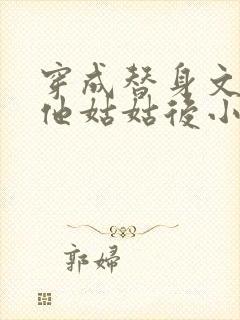 穿成替身文
他姑姑後小
郭婦